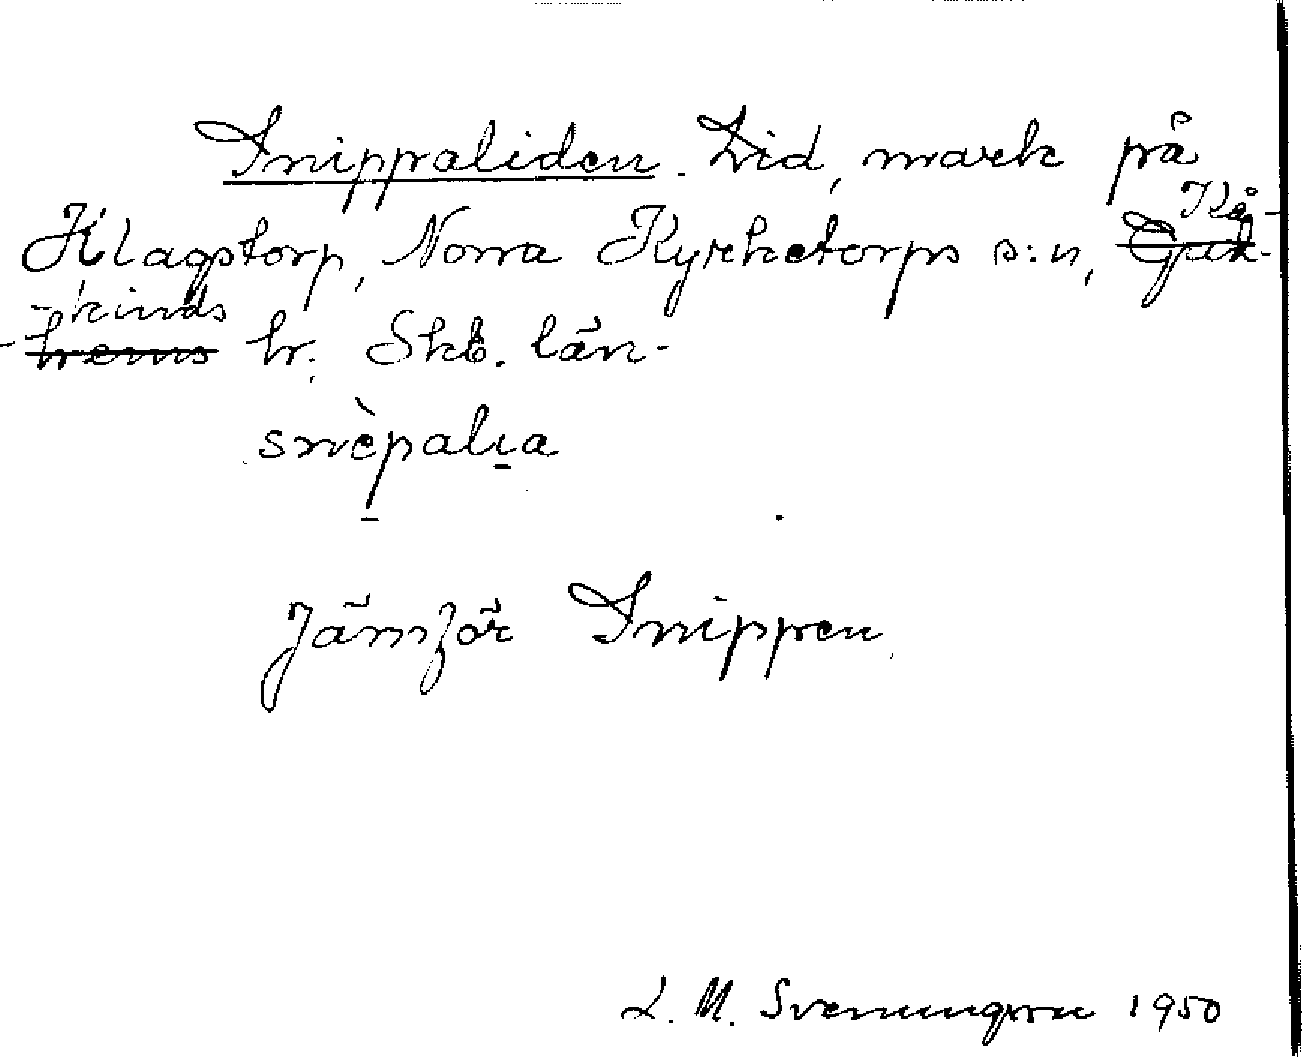 Snippaliden. Lid, mark på
Klagstorp, Norra Kyrketorps s:n, Kå-
-kinds hr. Skb. län.
snèpalia
Jämför Snippen.
L. M. Svenungsson 1950